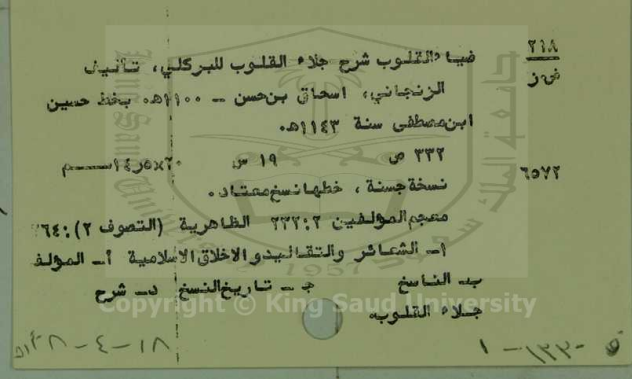 ٢١٨
ض٠ز
ضياء القلوب شرح جلاء القلوب للبركلي، تأليف
الزنجاني، اسحاق بن حسن ــ ١١٠٠هـ. بخط حسين
ابن مصطفى سنة ١١٤٣هـ.
٣٣٢ ص ١٩ س ٢٠×١٤٫٥ســم
٦٥٧٢
نسخة حسنة، خطها نسخ معتاد.
معجم المؤلفين ٢: ٢٣٢ الظاهرية (التصوف ٢):
أـ الشعائر والتقاليد والاخلاق الاسلامية أـ المؤلف
بـ الناسخ جـ تاريخ النسخ دـ شرح
جلاء القلوب.
Copyright © King Saud University
King Saud University
جامعة الملك سعود
1957